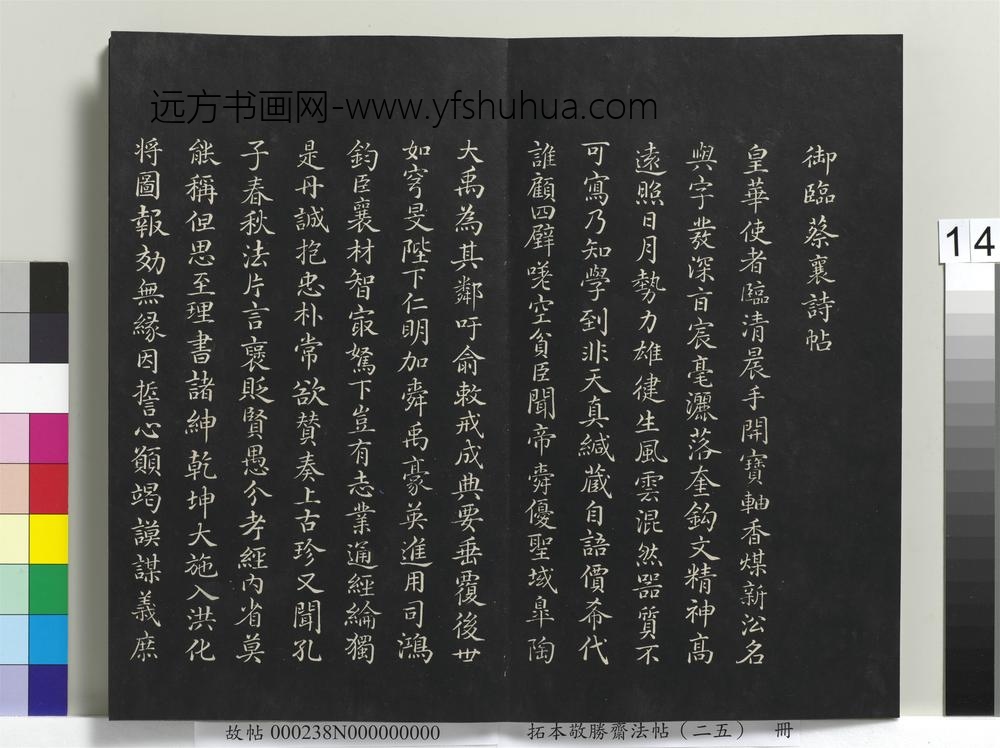 远方书画网-www.yfshuhua.com
御臨蔡襄詩帖
皇華使者臨清晨手開寶軸香煤新沿名
與字發深旨宸毫灑落奎鈎文精神高
遠照日月勢力雄健生風雲混然器質不
可寫乃知學到非天真緘藏自語價希代
誰顧四壁嗟空貧臣聞帝舜優聖域皐陶
大禹為其鄰吁俞敕戒成典要垂覆後世
如穹旻陛下仁明加舜禹豪英進用司鴻
鈞臣襄材智㝡駑下豈有志業通經綸獨
是丹誠抱忠朴常欲賛奏上古珍又聞孔
子春秋法片言褒貶賢愚分考經內省莫
能稱但思至理書諸紳乾坤大施入洪化
将圖報効無緣因誓心願竭謨謀義庶
14
故帖 000238N000000000
拓本敬勝齋法帖（二五） 冊